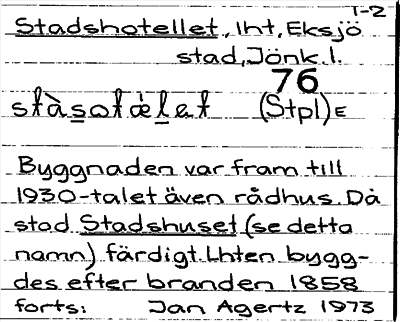 1-2
Stadshotellet, lht, Eksjö
stad, Jönk. l.
76
stàsotæ̀let (Stpl) E
Byggnaden var fram till
1930-talet även rådhus. Då
stod Stadshuset (se detta
namn) färdigt. Lhten bygg-
des efter branden 1858
forts: Jan Agertz 1973